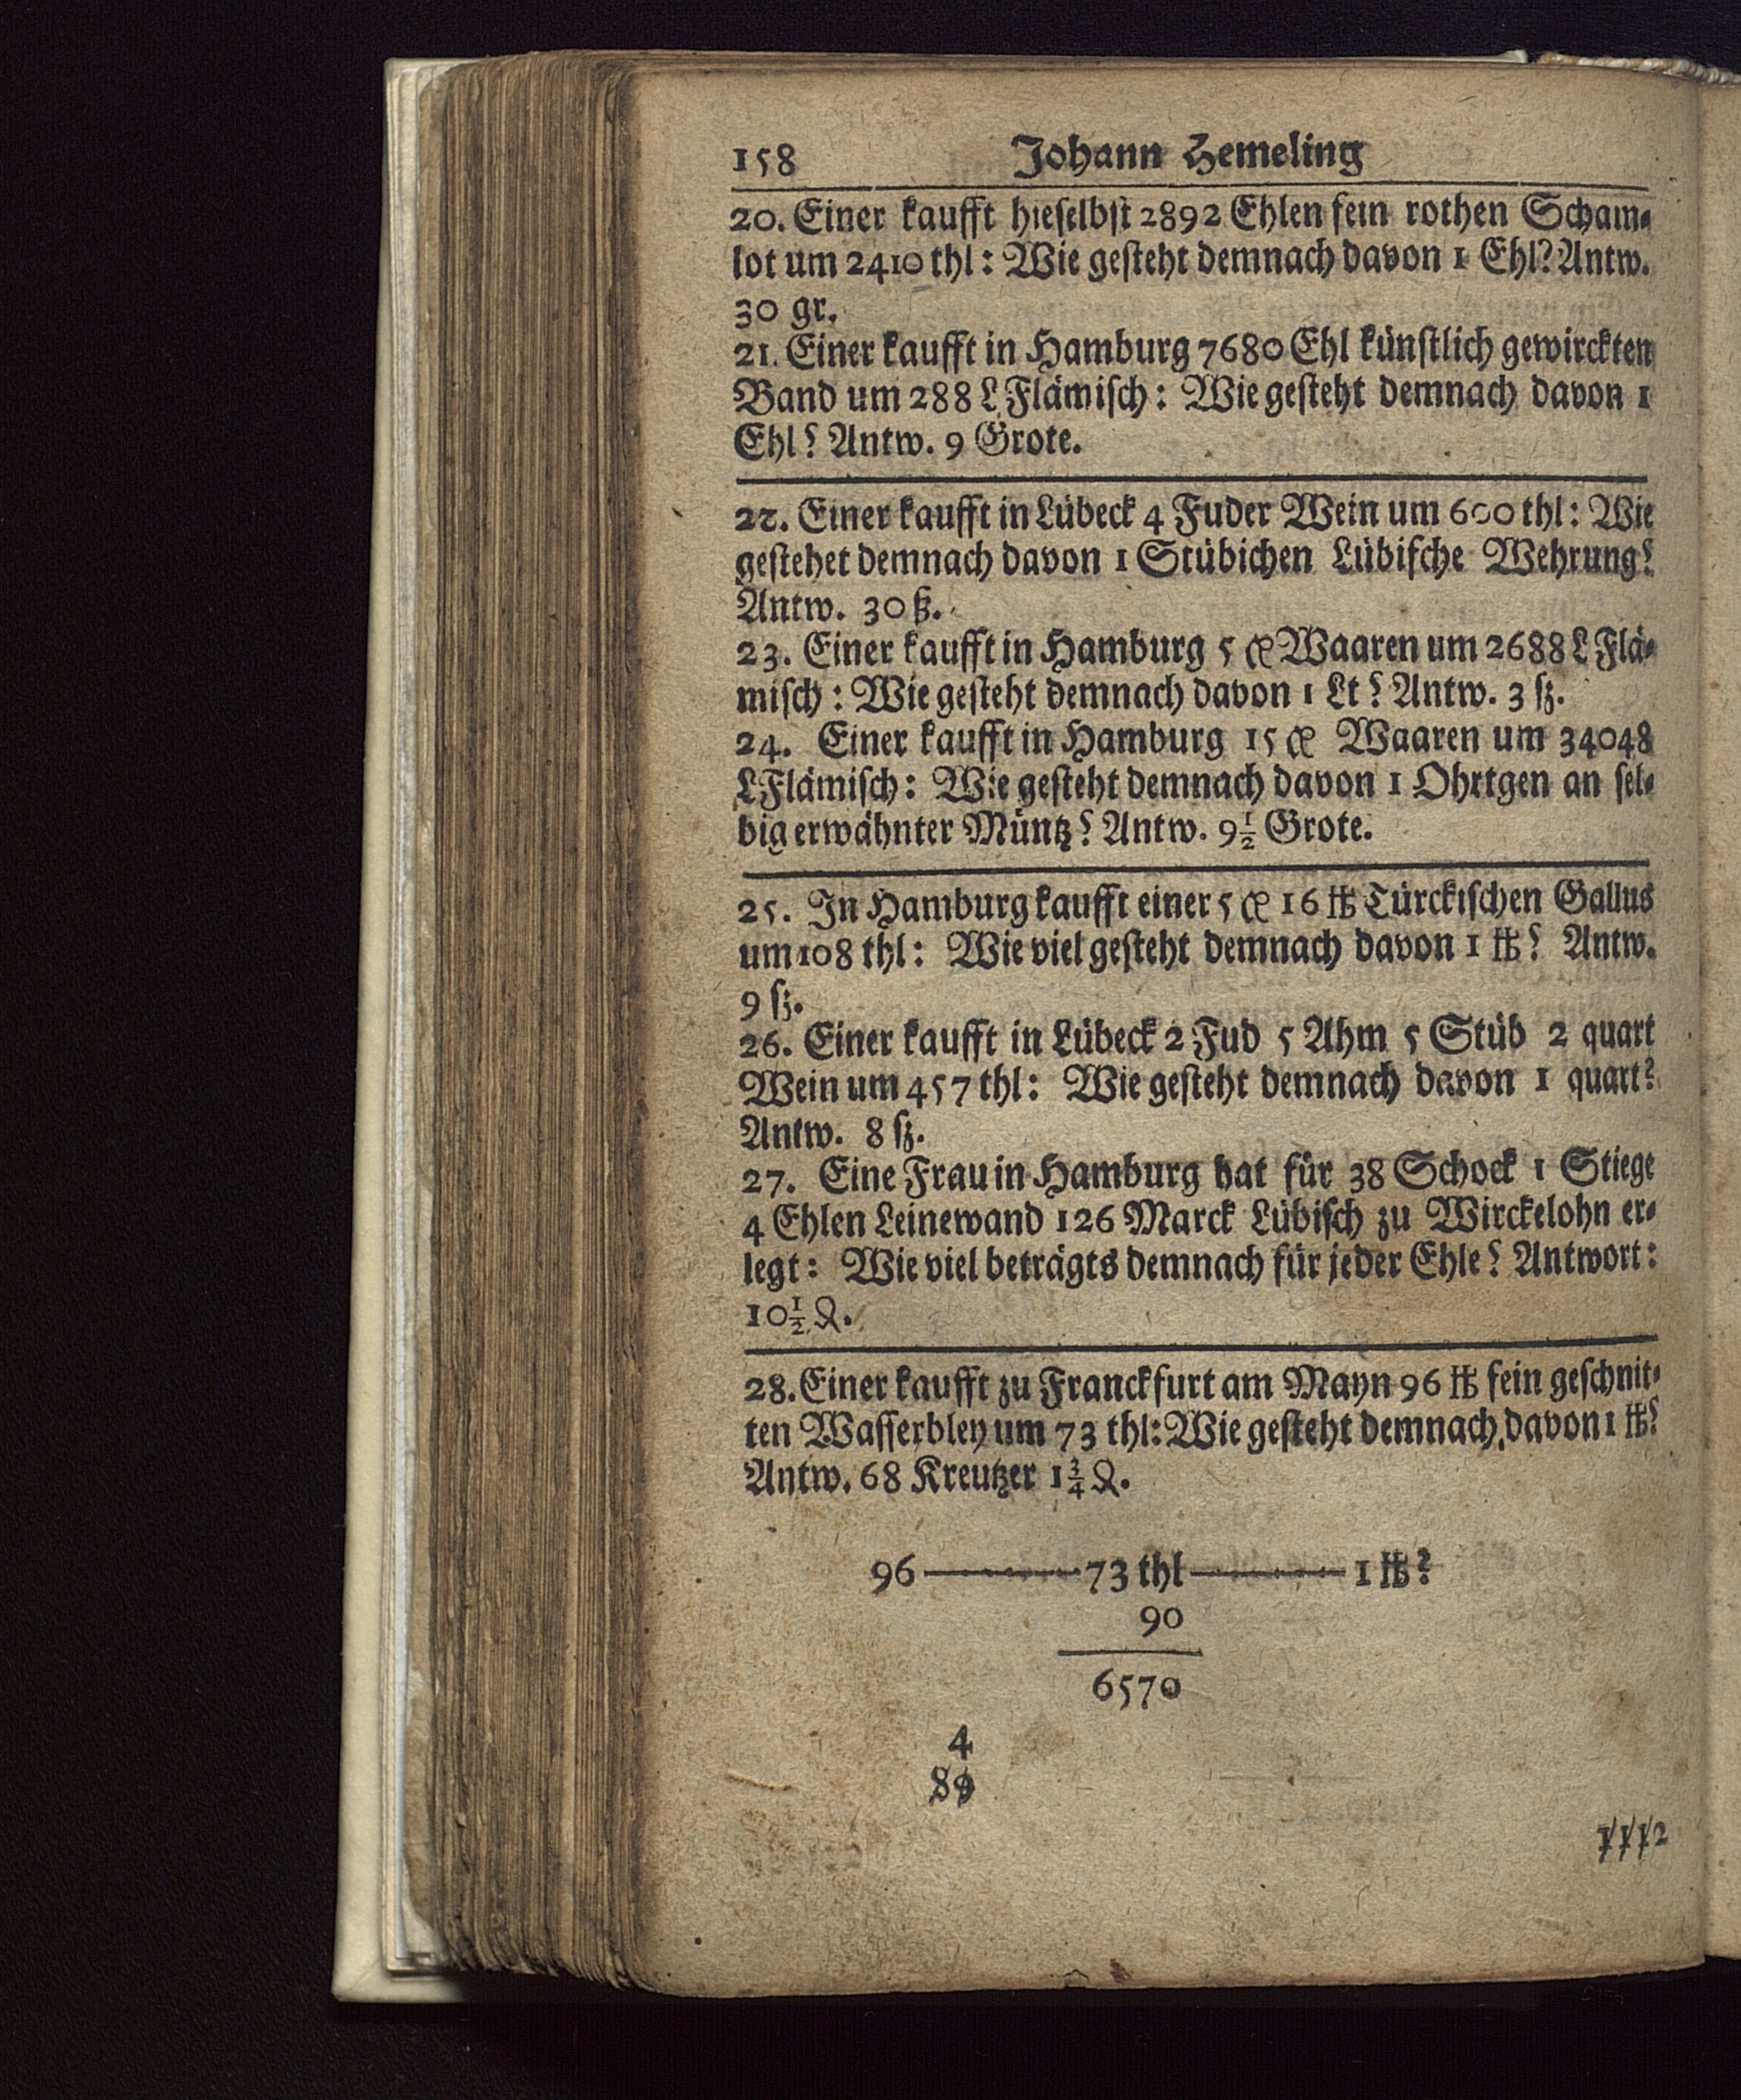 158 Johann Hemeling
20. Einer kaufft hieselbst 2892 Ehlen fein rothen Scham⸗
lot um 2410 thl: Wie gesteht demnach davon 1 Ehl? Antw.
30 gr.
21. Einer kaufft in Hamburg 7680 Ehl künstlich gewirckten
Band um 288 L Flämisch: Wie gesteht demnach davon 1
Ehl? Antw. 9 Grote.
22. Einer kaufft in Lübeck 4 Fuder Wein um 600 thl: Wie
gestehet demnach davon 1 Stübichen Lübische Wehrung?
Antw. 30 ß.
23. Einer kaufft in Hamburg 5 Waaren um 2688 L Flä⸗
misch: Wie gesteht demnach davon 1 Lt? Antw. 3 ß.
24. Einer kaufft in Hamburg 15 Waaren um 34048
L Flämisch: Wie gesteht demnach davon 1 Ohrtgen an sel⸗
big erwähnter Müntz? Antw. 9½ Grote.
25. In Hamburg kaufft einer 5 16 ℔ Türckischen Gallus
um 108 thl: Wie viel gesteht demnach davon 1 ℔? Antw.
9 ß.
26. Einer kaufft in Lübeck 2 Fud 5 Ahm 5 Stüb 2 quart
Wein um 457 thl: Wie gesteht demnach davon 1 quart?
Antw. 8 ß.
27. Eine Frau in Hamburg hat für 38 Schock 1 Stiege
4 Ehlen Leinewand 126 Marck Lübisch zu Wirckelohn er⸗
legt: Wie viel beträgts demnach für jeder Ehle? Antwort:
10½ ₰.
28. Einer kaufft zu Franckfurt am Mayn 96 ℔ fein geschnit⸗
ten Wasserbley um 73 thl: Wie gesteht demnach davon 1 ℔?
Antw. 68 Kreutzer 1¾ ₰.
96 — 73 thl — 1 ℔?
90
6570
4
89
1112